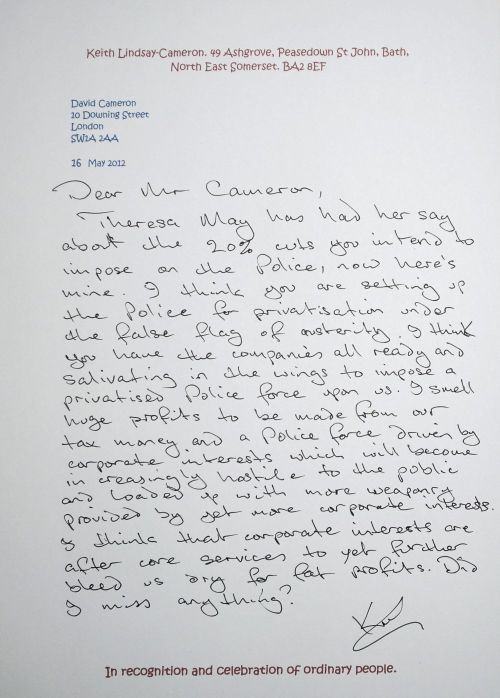 Keith Lindsay-Cameron. 49 Ashgrove, Peasedown St John, Bath,
North East Somerset. BA2 8EF
David Cameron
10 Downing Street
London
SW1A 2AA
16 May 2012
Dear Mr Cameron,
Theresa May has had her say
about the 20% cuts you intend to
impose on the Police, now here's
mine. I think you are setting up
the Police for privatisation under
the false flag of austerity. I think
you have the companies all ready and
salivating in the wings to impose a
privatised Police force upon us. I smell
huge profits to be made from our
tax money and a Police force driven by
corporate interests which will become
increasingly hostile to the public
and loaded up with more weaponry
provided by yet more corporate interests.
I think that corporate interests are
after core services to yet further
bleed us dry for fat profits. Did
I miss anything?
In recognition and celebration of ordinary people.